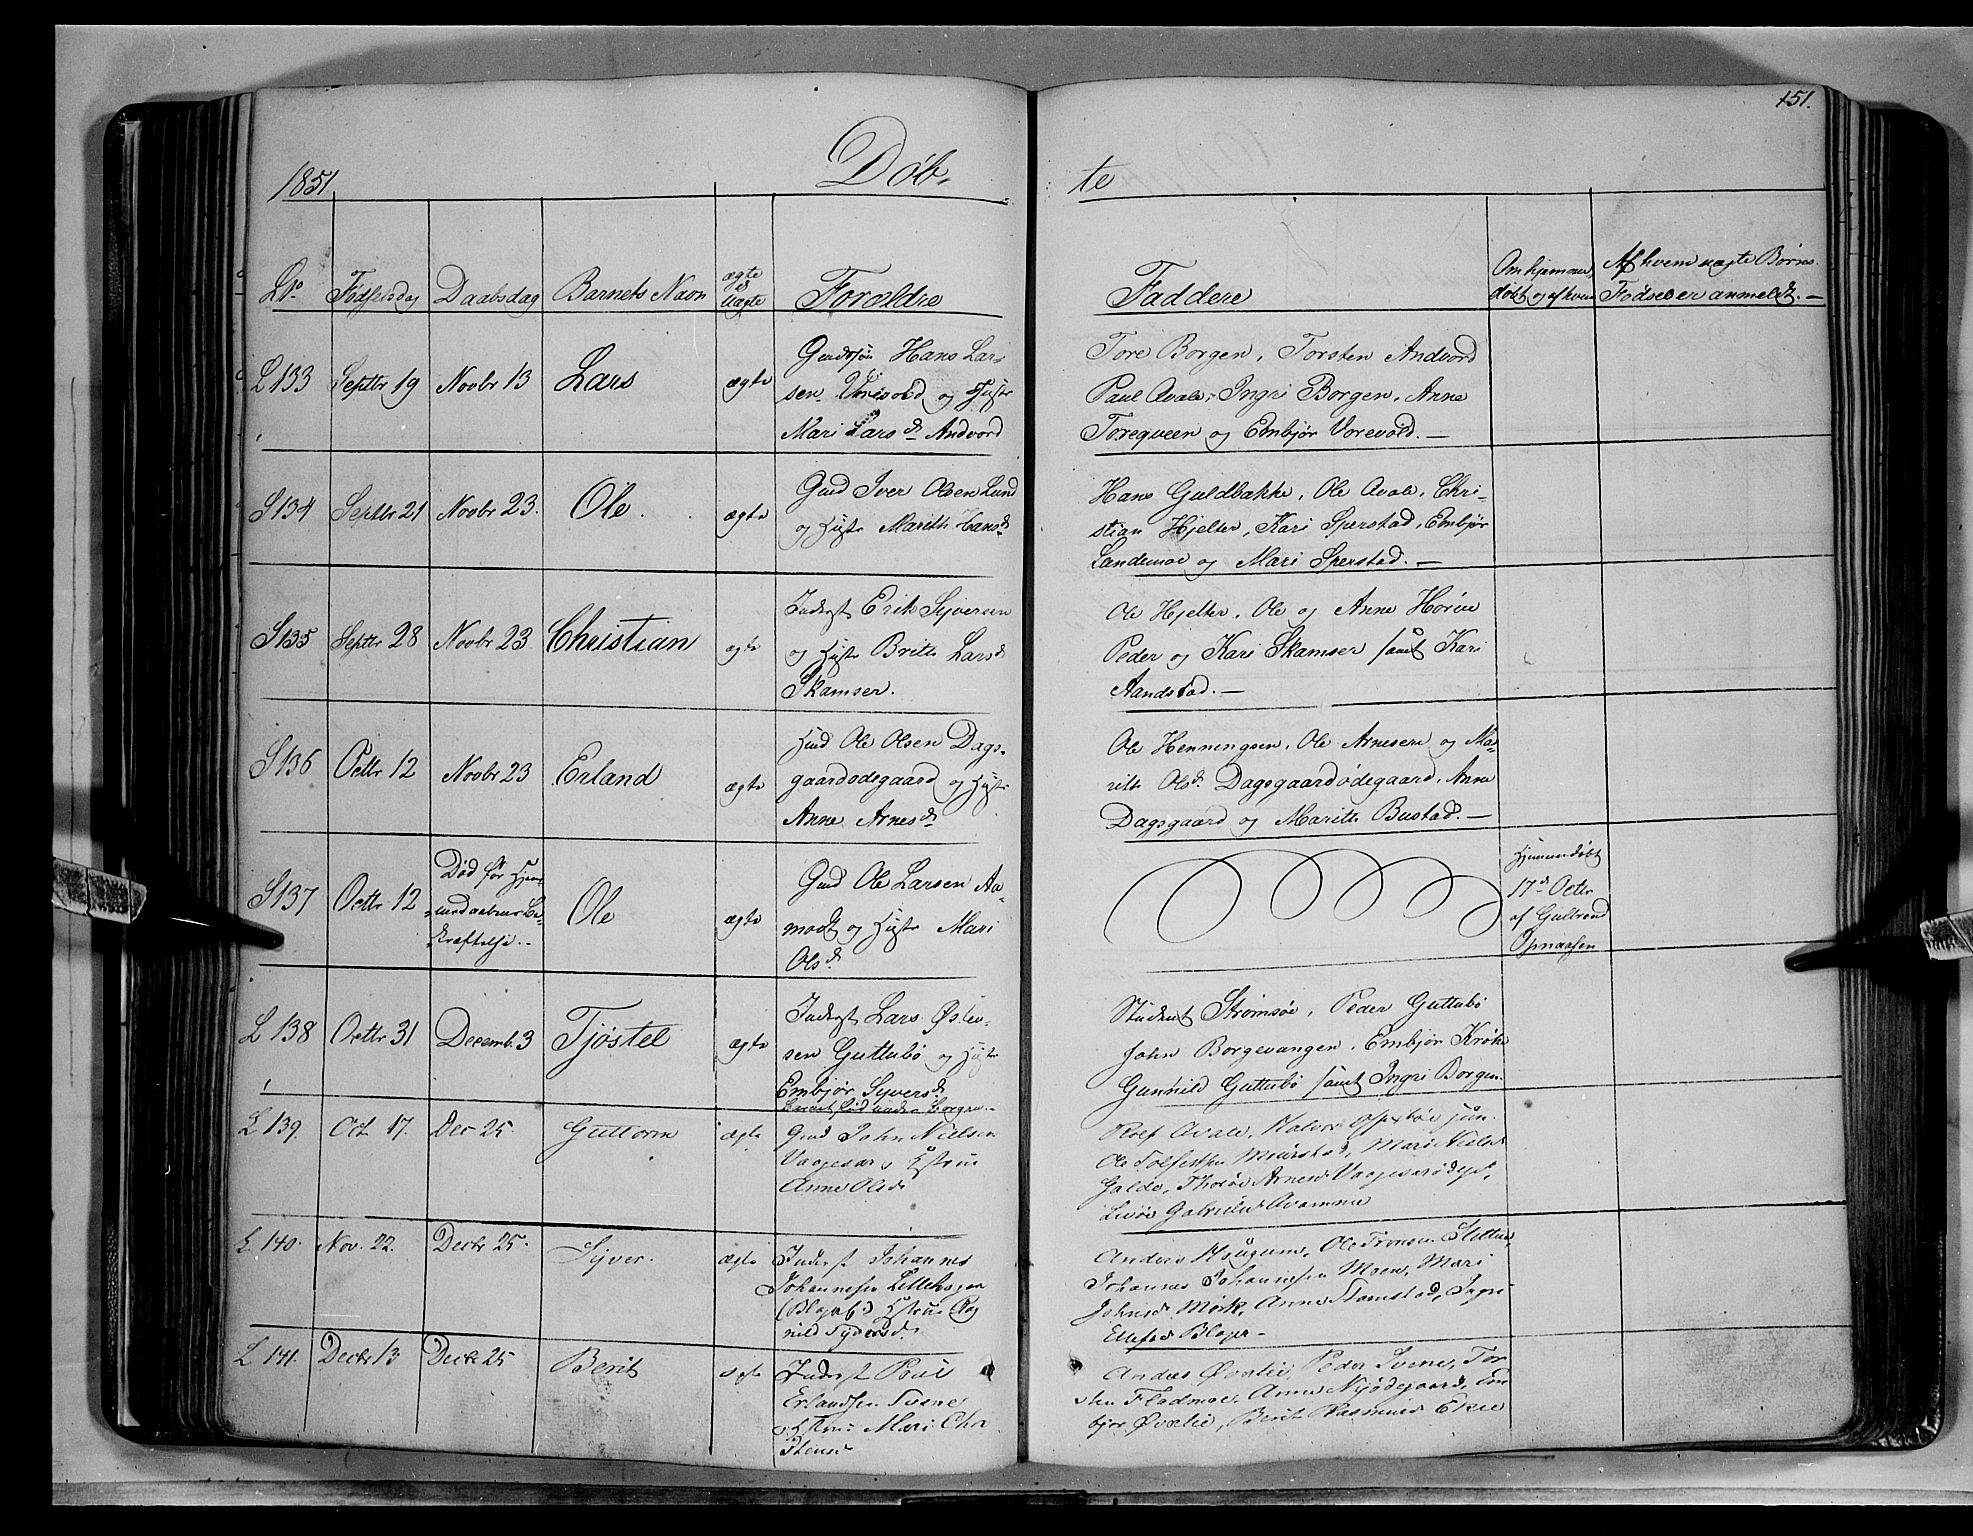 151.
1851.
Døb-
te
No.
Fødselsdag
Daabsdag
Barnets Navn
ægte
el
uægte
Forældre
Faddere
Om hjemme-
døbt og af hvem
Af hvem uægte Børns
Fødsel er anmeldt. —
L 133
Septbr 19
Novbr 13
Lars
ægte
Gaardsøn Hans Lar-
sen Vorevold og Hustr
Mari Larsd. Andvord
Tore Borgen, Torsten Andvord
Paul Avale, Ingri Borgen, Anne
Toreqveen og Embjør Vorevold. —
S 134
Septbr 21
Novbr 23.
Ole.
ægte
Gmd Iver Olsen Lund
og Hustr Marith Hansd.
Hans Guldbakke, Ole Avale, Chri-
stian Hjelter, Kari Sperstad, Embjør
Landemoe og Mari Sperstad. —
S 135
Septbr 28
Novbr 23
Christian
ægte
Inderst Erik Syversen
og Hustr Britte Larsd
Skamser.
Ole Hjelter, Ole og Anne Horine
Peder og Kari Skamser samt Kari
Aandstad. —
S 136
Octbr 12
Novbr 23
Erland
ægte
Huusmd Ole Olsen Dags-
gaardødegaard og Hustr
Anne Arnesd.
Ole Henningsen, Ole Arnesen og Ma-
rith Olsd. Dagsgaardødegaard, Anne
Dagsgaard og Marith Bustad. —
S 137
Octbr 12
Død før Hjem-
medaabens Be-
kræftelse. -
Ole
ægte
Gmd Ole Larsen Aa-
modt og Hustr Mari
Olsd.
Hjemmedøbt
17de Octbr
af Gulbrand
Opnaasen
L 138
Octbr 31
Decemb. 3
Tjøstel
ægte
Inderst Lars Østen-
sen Guttubø og Hustr
Embjør Syversd.
Barnet født under Borgen. -
Student Strømsøe, Peder Guttubø
John Borgevangen, Embjør Krøke
Gunhild Guttubø samt Ingri Borgen.
L 139.
Oct. 17.
Dec 25.
Guttorm
ægte
Gmd John Nielsen
Vaagesar, Hstrue
Anne Olsd.
Rolf Avale, Halvor jun.
Ole Tolfestsen Meurstad, Mari Nielsd
Galde, Thorøe Arnesd Vaagesarødegd,
Gabrielsd Avamme
L. 140.
Nov. 22.
Decbr 25.
Syver.
ægte
Inderst Johannes
Johannesen Lillehagen
(Blager) Hstrue Rag
nild Syversd.
Anders Hougum, Ole Tronsen Sletten,
Johannes Johannesen Moen, Mari
Johnsd Mørk, Anne Stamstad, Ingri
Ellefsd Blager —
L 141.
Decbr 13
Decbr 25
Berit
ægte
Inderst Poul
Erlandsen Svene
Hstrue Mari Chri
stensd
Anders Øvrelie, Peder Svene, Tor
sten Fladmoe, Anne Nyødegaard, Em
bjør Øvrelie, Berit Rasmusd Ekre